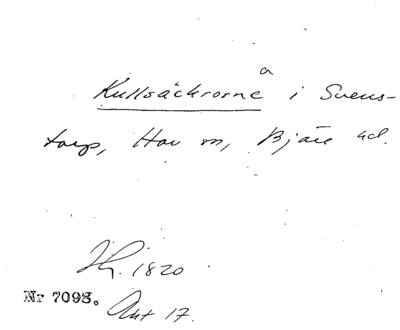 Kullsäckrorne a i Svens-
torp, Hov sn, Bjäre hd.
Hg. 1820
Nr 7098.
Akt 17.